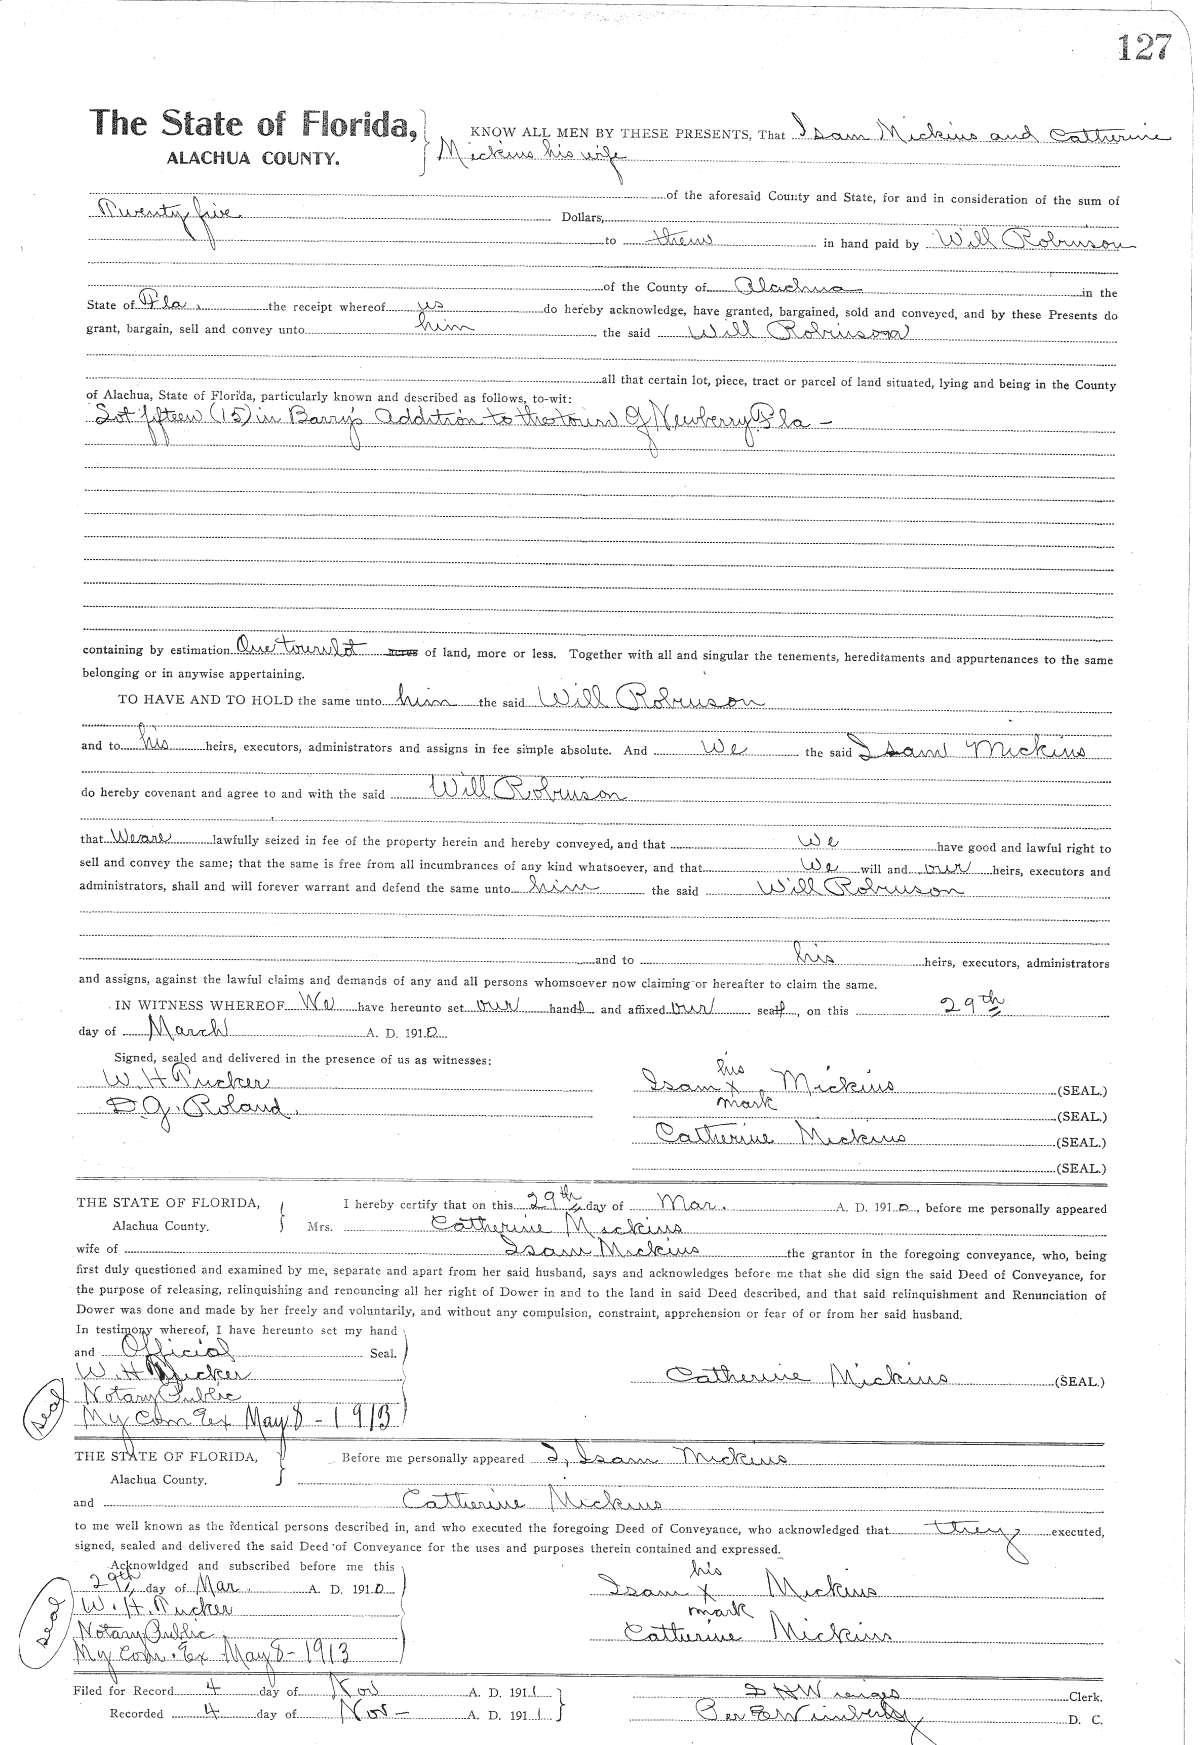 127
The State of Florida, KNOW ALL MEN BY THESE PRESENTS, That Isam Mickins and Catherine
ALACHUA COUNTY. Mickins his wife
of the aforesaid County and State, for and in consideration of the sum of
Twenty five Dollars,
to them in hand paid by Will Robinson
of the County of Alachua in the
State of Fla. the receipt whereof us do hereby acknowledge, have granted, bargained, sold and conveyed, and by these Presents do
grant, bargain, sell and convey unto him the said Will Robinson
all that certain lot, piece, tract or parcel of land situated, lying and being in the County
of Alachua, State of Florida, particularly known and described as follows, to-wit:
Lot fifteen (15) in Barry's Addition to the town of Newberry Fla -
containing by estimation One town lot acres of land, more or less. Together with all and singular the tenements, hereditaments and appurtenances to the same
belonging or in anywise appertaining.
TO HAVE AND TO HOLD the same unto him the said Will Robinson
and to his heirs, executors, administrators and assigns in fee simple absolute. And We the said Isam Mickins
do hereby covenant and agree to and with the said Will Robinson
that We are lawfully seized in fee of the property herein and hereby conveyed, and that we have good and lawful right to
sell and convey the same; that the same is free from all incumbrances of any kind whatsoever, and that We will and our heirs, executors and
administrators, shall and will forever warrant and defend the same unto him the said Will Robinson
and to his heirs, executors, administrators
and assigns, against the lawful claims and demands of any and all persons whomsoever now claiming or hereafter to claim the same.
IN WITNESS WHEREOF We have hereunto set our hands and affixed our seals, on this 29th
day of March A. D. 1910
Signed, sealed and delivered in the presence of us as witnesses:
his
W. H Tucker Isam x Mickins (SEAL.)
mark
D. G. Roland. (SEAL.)
Catherine Mickins (SEAL.)
(SEAL.)
THE STATE OF FLORIDA, I hereby certify that on this 29th day of Mar. A. D. 1910, before me personally appeared
Alachua County. Mrs. Catherine Mickins
wife of Isam Mickins the grantor in the foregoing conveyance, who, being
first duly questioned and examined by me, separate and apart from her said husband, says and acknowledges before me that she did sign the said Deed of Conveyance, for
the purpose of releasing, relinquishing and renouncing all her right of Dower in and to the land in said Deed described, and that said relinquishment and Renunciation of
Dower was done and made by her freely and voluntarily, and without any compulsion, constraint, apprehension or fear of or from her said husband.
In testimony whereof, I have hereunto set my hand
and Official Seal.
W. H Tucker Catherine Mickins (SEAL.)
Notary Public
seal
My Com Ex May 8 - 1913
THE STATE OF FLORIDA, Before me personally appeared I, Isam Mickins
Alachua County.
and Catherine Mickins
to me well known as the identical persons described in, and who executed the foregoing Deed of Conveyance, who acknowledged that they executed,
signed, sealed and delivered the said Deed of Conveyance for the uses and purposes therein contained and expressed.
Acknowldged and subscribed before me this
his
29th day of Mar A. D. 1910 Isam x Mickins
mark
W. H. Tucker
seal
Notary Public Catherine Mickins
My Com. Ex May 8 - 1913
Filed for Record 4 day of Nov A. D. 1911 Clerk.
Recorded 4 day of Nov - A. D. 1911 Per Wimberly D. C.